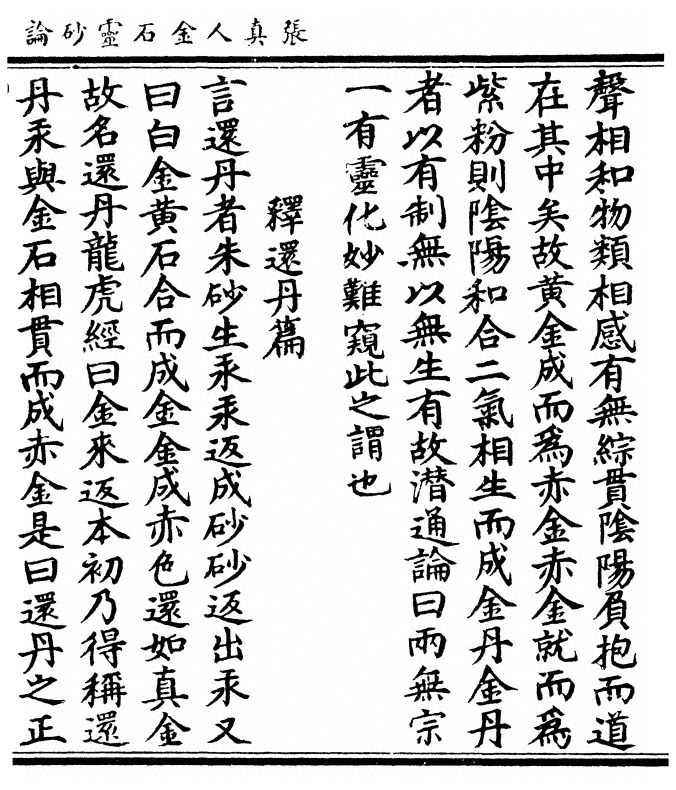 張真人金石靈砂論
聲相和物類相感有無綜貫陰陽負抱而道
在其中矣故黃金成而爲赤金赤金就而爲
紫粉則陰陽和合二氣相生而成金丹金丹
者以有制無以無生有故潛通論曰兩無宗
一有靈化妙難窺此之謂也
釋還丹篇
言還丹者朱砂生汞汞返成砂砂返出汞又
曰白金黃石合而成金金成赤色還如真金
故名還丹龍虎經曰金來返本初乃得稱還
丹汞與金石相貫而成赤金是曰還丹之正